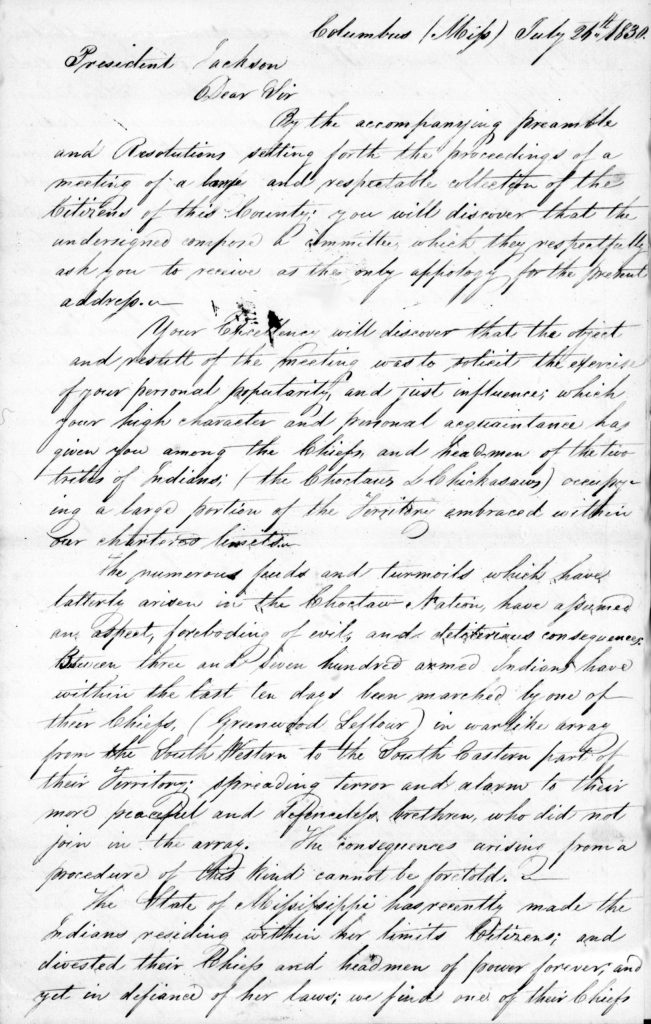 Columbus (Miss) July 26th 1830.
President Jackson
Dear Sir
By the accompanying preamble
and Resolutions setting forth the proceedings of a
meeting of a large and respectable collection of the
Citizens of this County; you will discover that the
undersigned compose a committee, which they respectfully
ask you to receive as the only appology for the present
address.
Your Excellency will discover that the object
and result of the meeting was to solicit the exercise
of your personal popularity, and just influence; which
your high character and personal acquaintance has
given you among the Chiefs, and headmen of the two
tribes of Indians; (the Choctaws & Chickasaws) occupy-
ing a large portion of the Territory embraced within
our chartered limits.
The numerous feuds and turmoils which have
latterly arisen in the Choctaw Nation, have assumed
an aspect, foreboding of evil, and deleterious consequences.
Between three and Seven hundred armed Indians have
within the last ten days been marched by one of
their Chiefs, (Greenwood Leflour) in warlike array
from the South Western to the South Eastern part of
their Territory; spreading terror and alarm to their
more peaceful and defenceless brethren, who did not
join in the array. The consequences arising from a
procedure of this kind cannot be foretold.
The State of Missisissippi has recently made the
Indians residing within her limits Citizens; and
divested their Chiefs and headmen of power forever, and
yet in defiance of her laws; we find one of their Chiefs